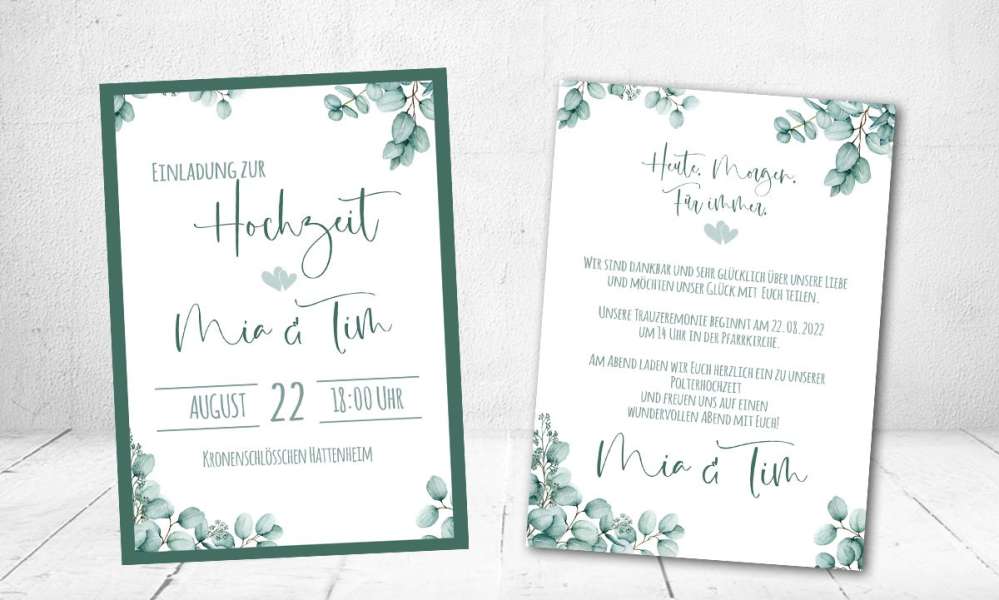 Einladung zur
Hochzeit
Mia & Tim
August 22 18:00 Uhr
Kronenschlösschen Hattenheim
Heute. Morgen.
Für immer.
Wir sind dankbar und sehr glücklich über unsere Liebe
und möchten unser Glück mit Euch teilen.
Unsere Trauzeremonie beginnt am 22.08.2022
um 14 Uhr in der Pfarrkirche.
Am Abend laden wir Euch herzlich ein zu unserer
Polterhochzeit
und freuen uns auf einen
wundervollen Abend mit Euch!
Mia & Tim